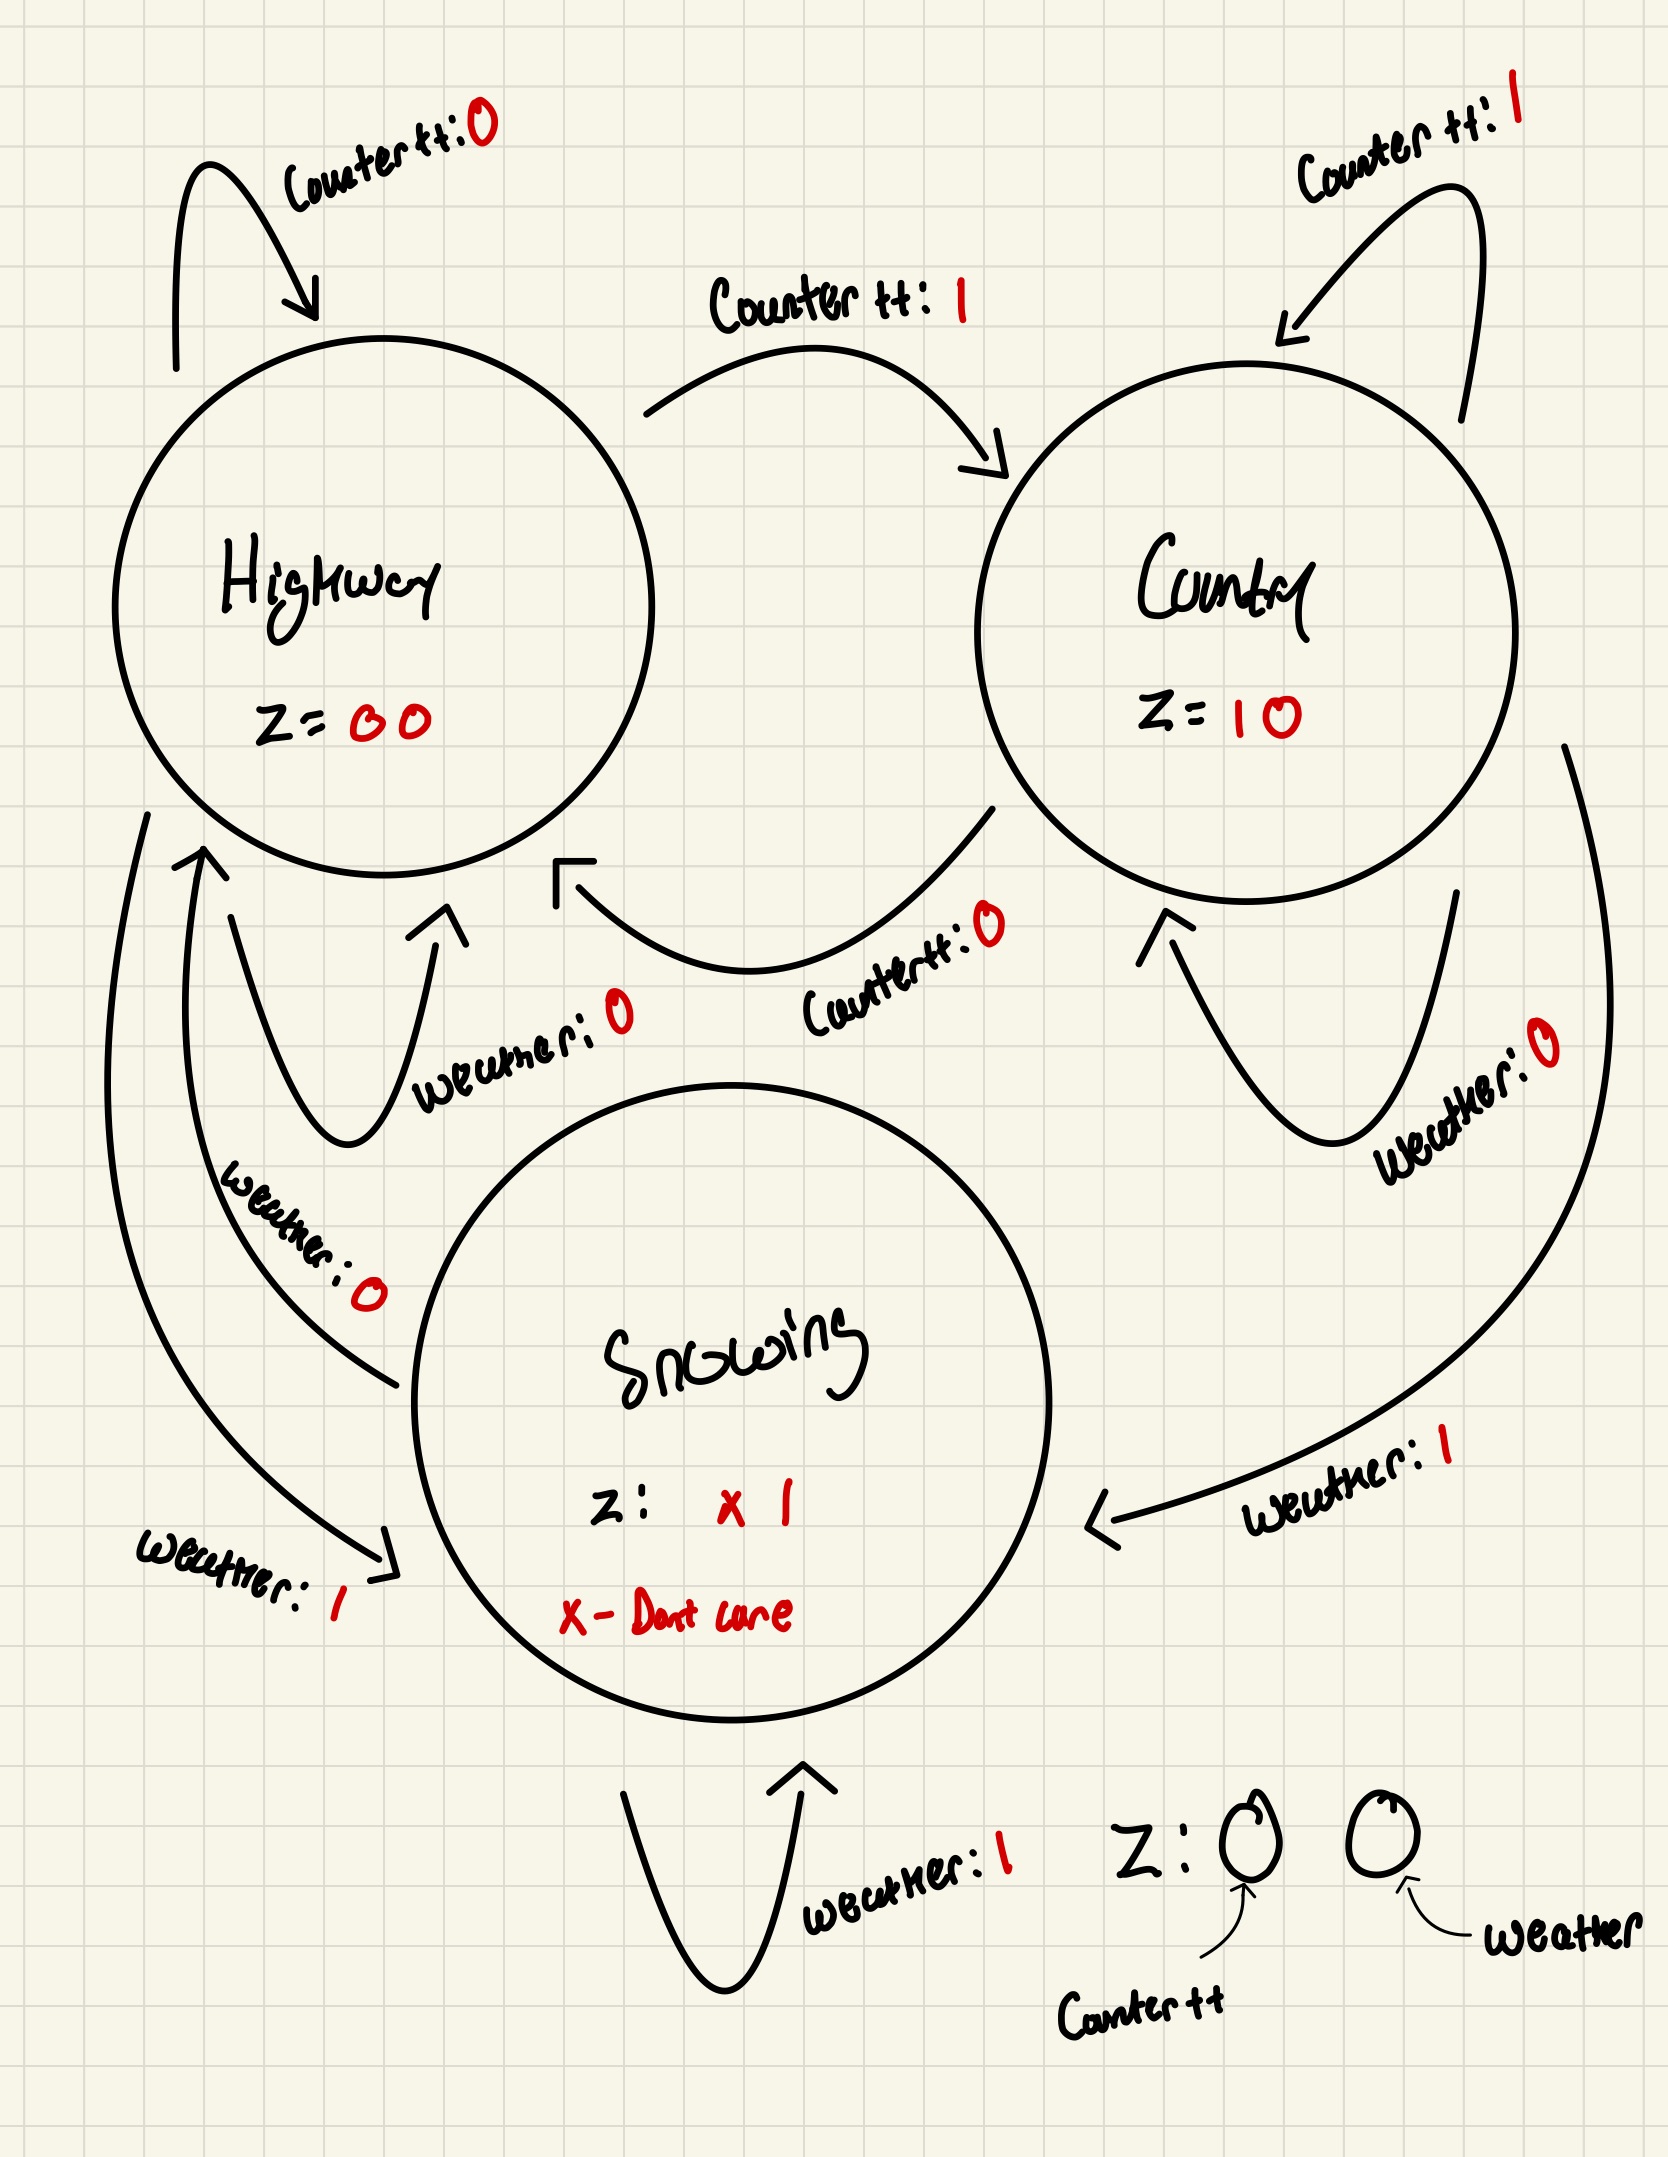 Counter++: 0
Counter++: 1
Counter++: 1
Highway
Z= 00
Country
Z= 10
Counter++: 0
weather: 0
weather: 0
weather: 0
Snowing
Z: X 1
X - Dont care
weather: 1
weather: 1
weather: 1
Z: 0 0
weather
Counter++